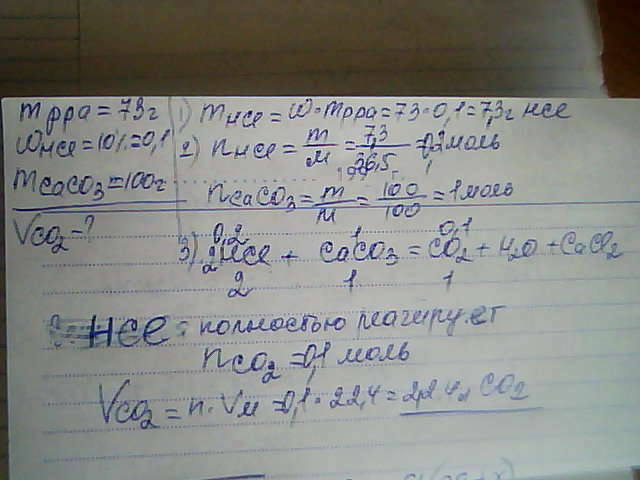 mр-ра = 73г
ωHCl = 10% = 0,1
mCaCO3 = 100г
VCO2 - ?
1) mHCl = ω·mр-ра = 73·0,1 = 7,3г HCl
2) nHCl = m/M = 7,3/36,5 = 0,2 моль
nCaCO3 = m/M = 100/100 = 1 моль
0,2 1 0,1
3) 2HCl + CaCO3 = CO2 + H2O + CaCl2
2 1 1
HCl - полностью реагирует
nCO2 = 0,1 моль
VCO2 = n·Vм = 0,1·22,4 = 2,24л CO2